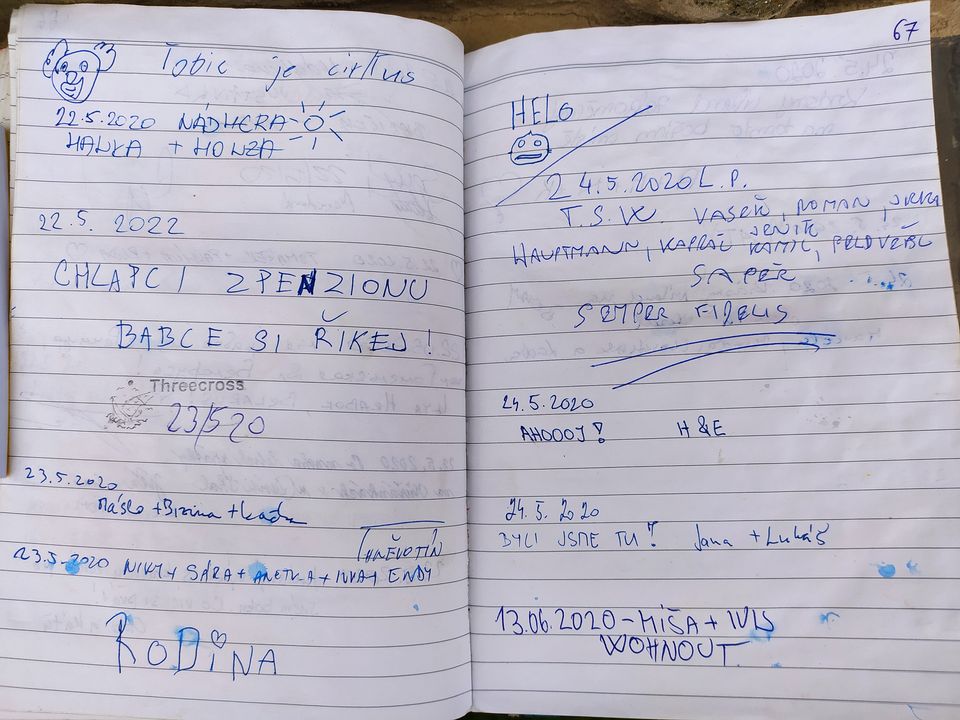 je cirkus
22.5.2020 NÁDHERA
HANKA + HONZA
22.5. 2022
CHLAPCI Z PENZIONU
BABCE SI ŘIKEJ!
Threecross
23/5 20
23.5.2020
Máslo + Bizina +
HNĚVOTÍN
23.5.2020 NIKY + SÁRA + ANETKA + IVKA + ENDY
RODINA
67
HELO
24.5.2020 L.P.
T.S.W. ROMAN, JIRKA
HAUPTMANN, KAMIL,
SEMPER FIDELIS
24.5.2020
AHOOOJ! H&E
24.5. 2020
BYLI JSME TU! Jana + Lukáš
13.06.2020 - MÍŠA +
WOHNOUT